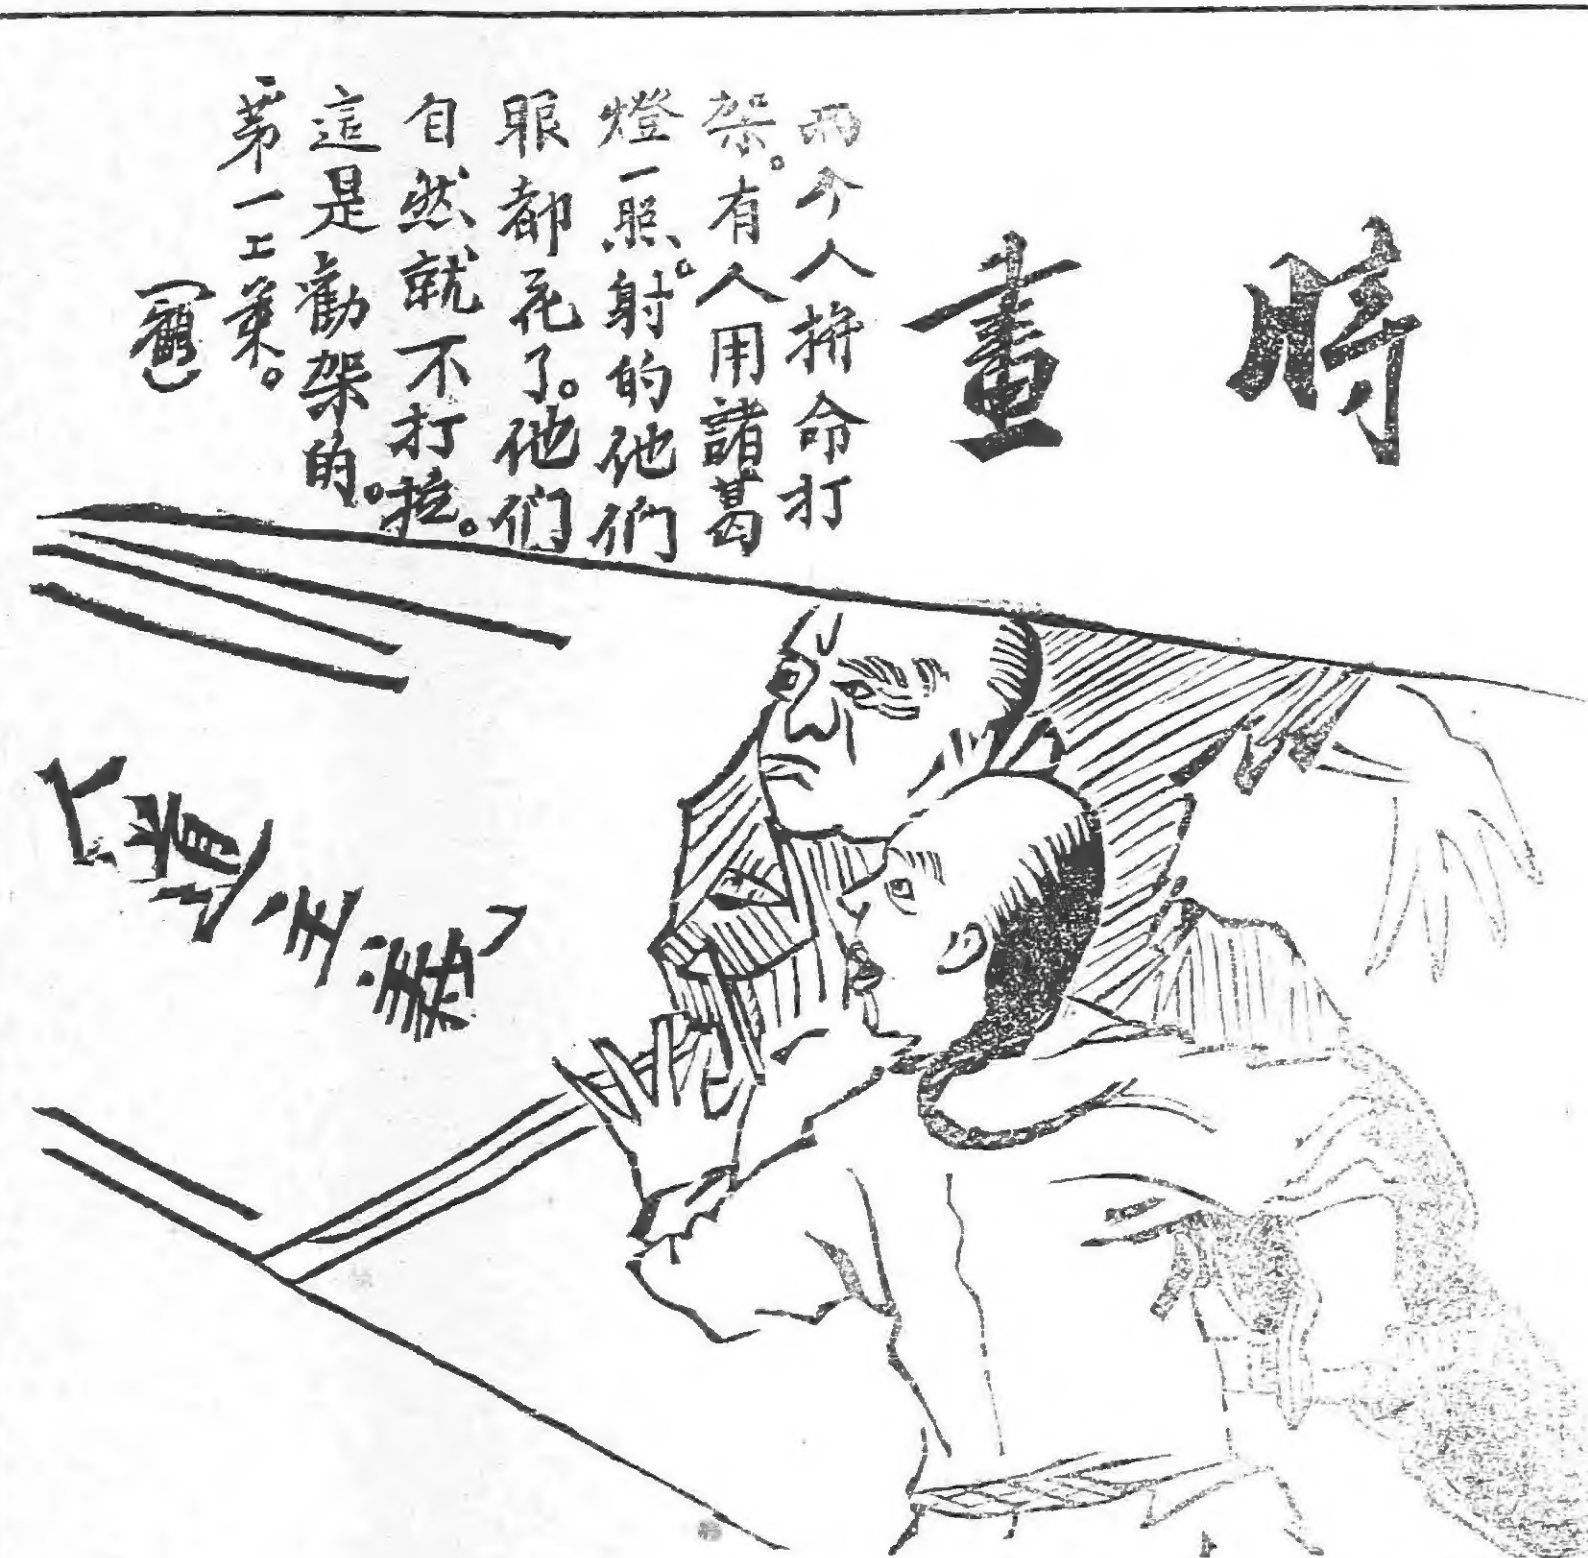 時畫
两个人拚命打
架。有人用諸葛
燈一照。射的他们
眼都花了。他们
自然就不打拉。
這是勸架的。
第一上策。
人道主義